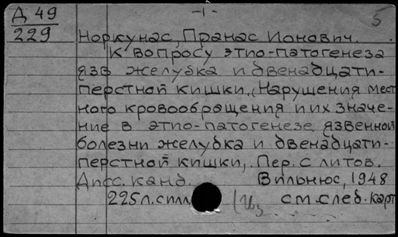 Д 49 -1- 5
229 Норкунас, Пранас Ионович.
К вопросу этио-патогенеза
язв желубка и двенадцати-
перстной кишки, (Нарушения мест
ного кровообращения и их значе-
ние в этио-патогенезе язвенной
болезни желубка и двенадцати-
перстной кишки, Пер. с литов.
Дисс. канд. Вильнюс, 1948
225 л. с илл. см. след. карт